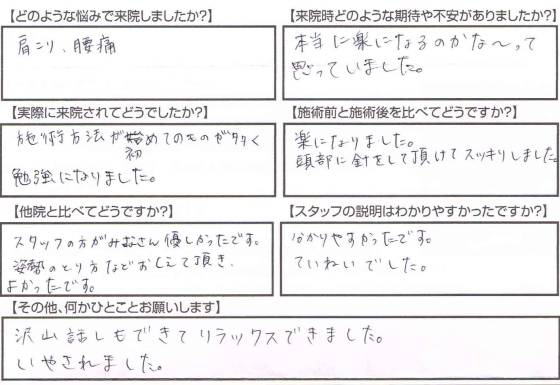 【どのような悩みで来院しましたか?】
肩こり、腰痛
【来院時どのような期待や不安がありましたか?】
本当に楽になるのかな～って
思っていました。
【実際に来院されてどうでしたか?】
施術方法が初めてのものが多く
勉強になりました。
【施術前と施術後を比べてどうですか?】
楽になりました。
頭部に針をして頂けてスッキリしました。
【他院と比べてどうですか?】
スタッフの方がみなさん優しかったです。
姿勢のとり方などおしえて頂き、
よかったです。
【スタッフの説明はわかりやすかったですか?】
分かりやすかったです。
ていねいでした。
【その他、何かひとことお願いします】
沢山話しもできてリラックスできました。
いやされました。